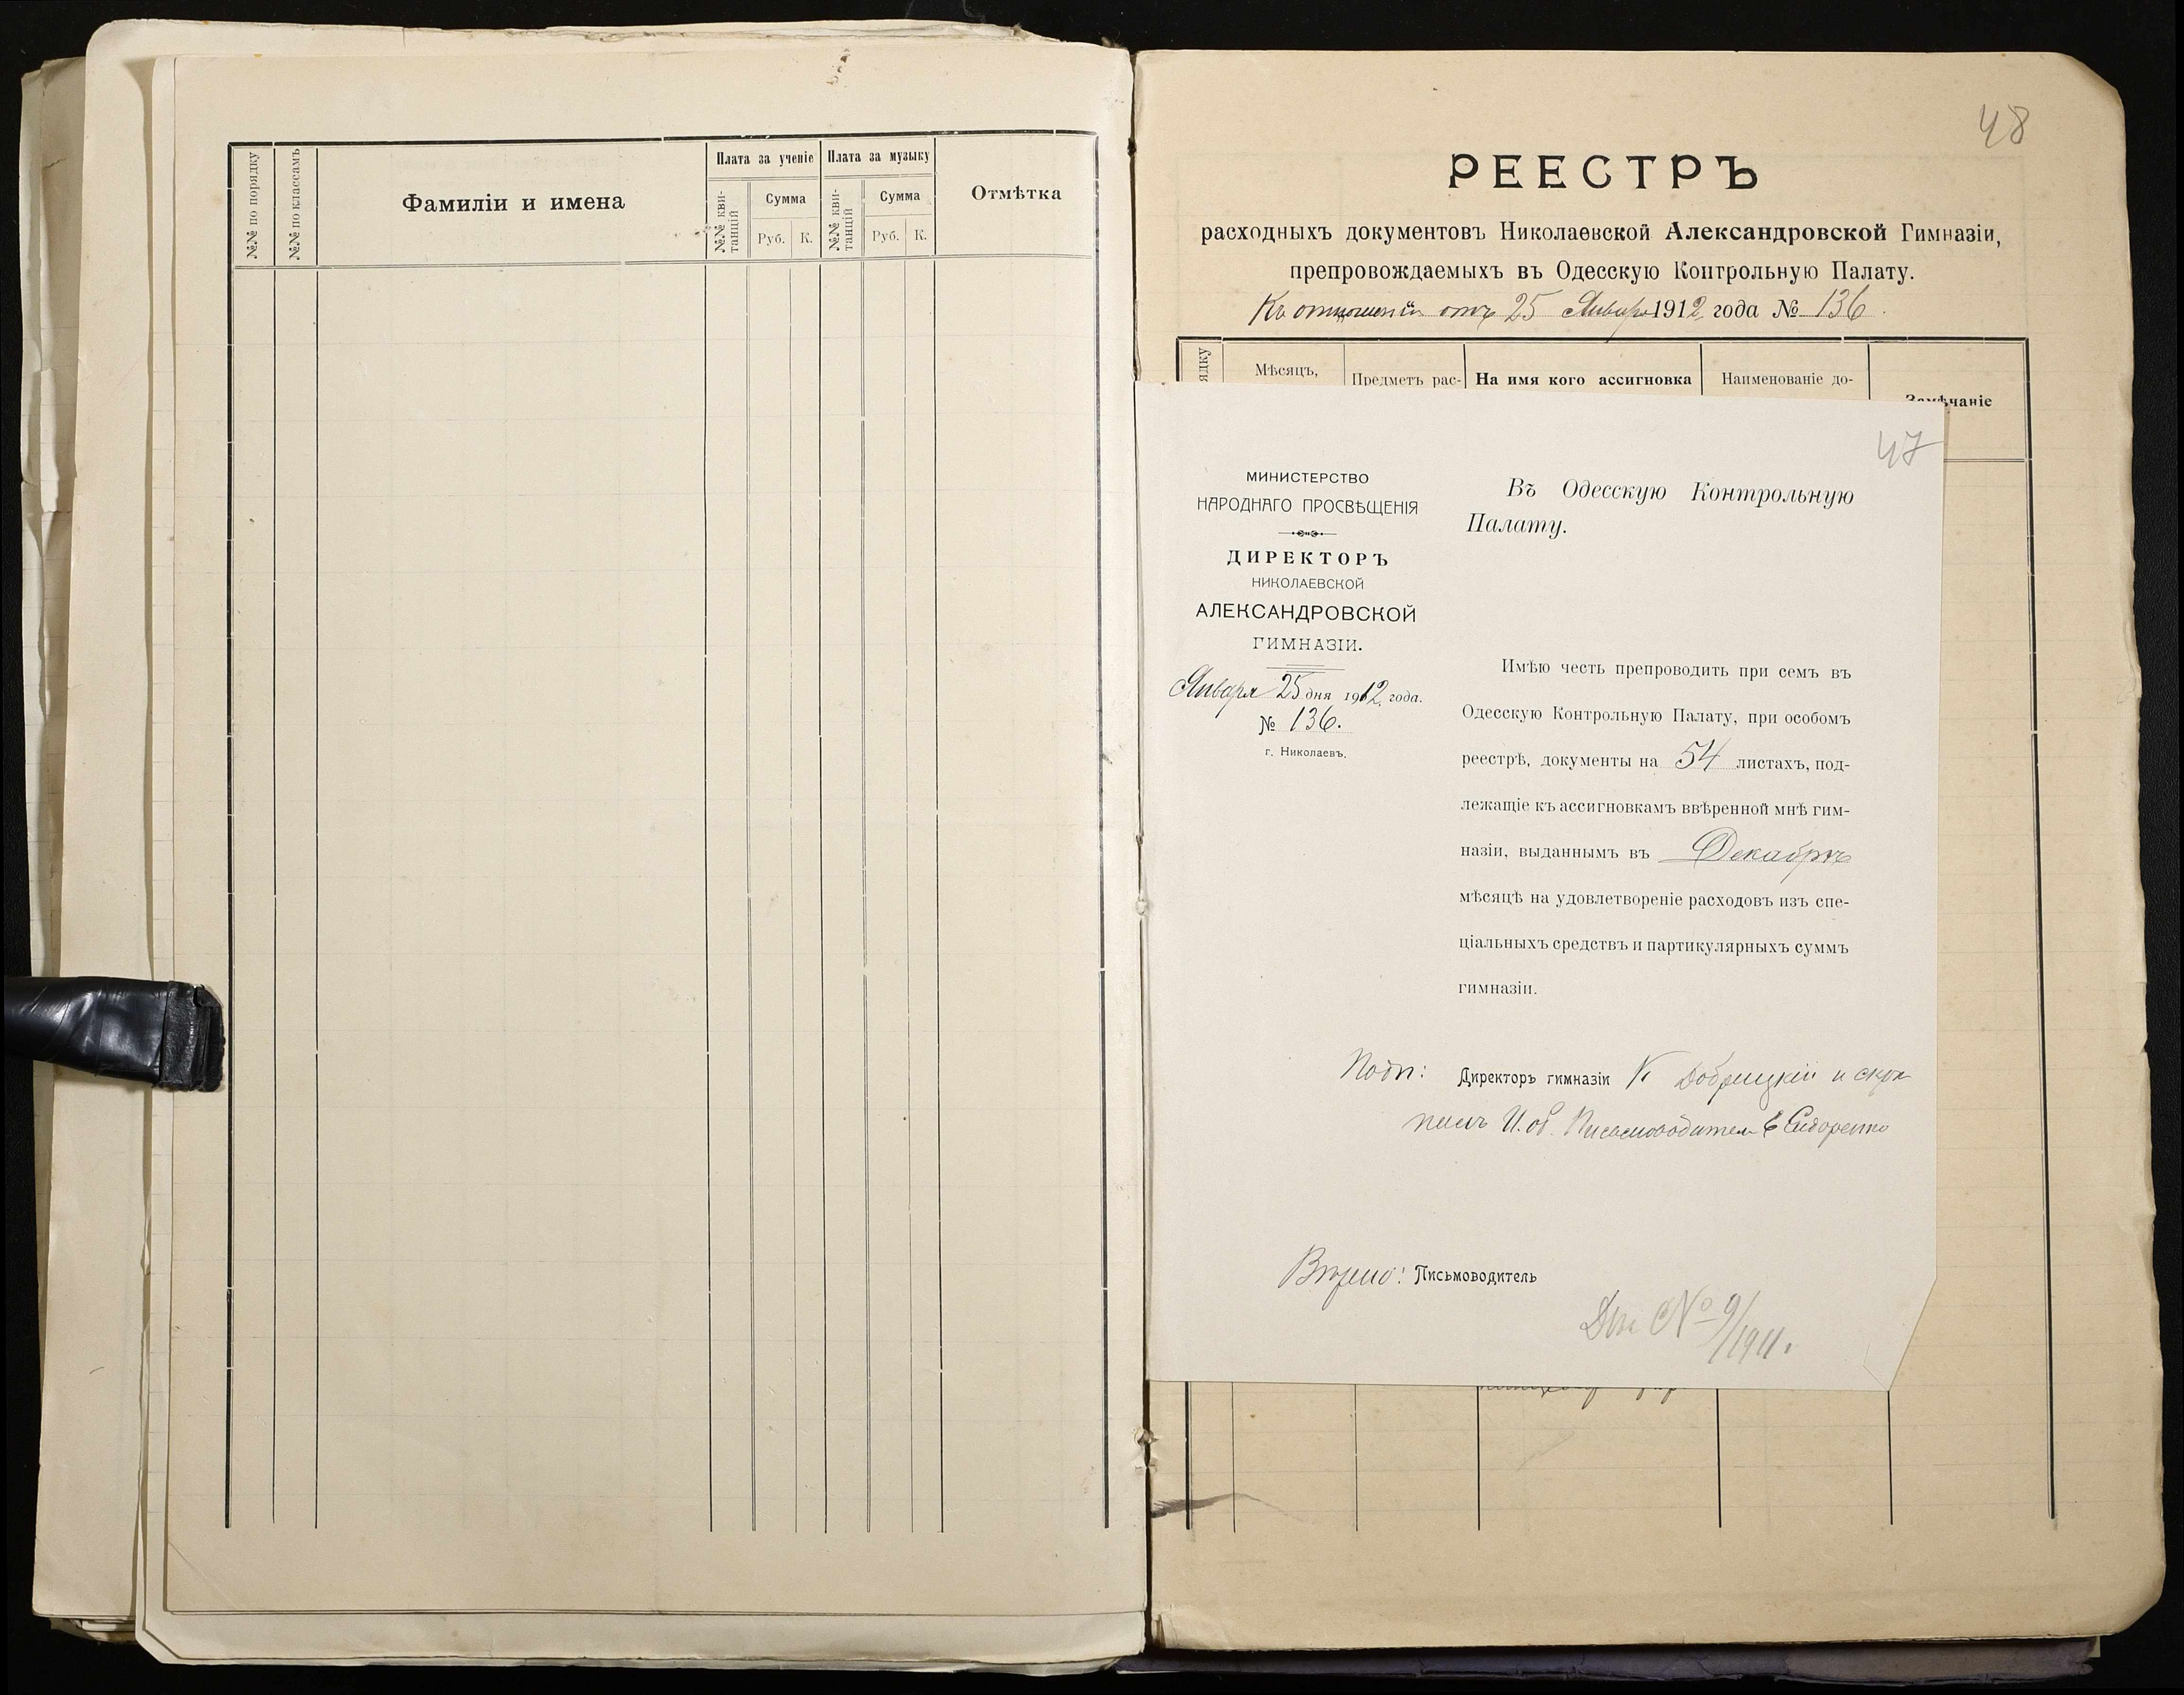 №№ по порядку
№№ по классамъ
Фамиліи и имена
Плата за ученіе
№№ кви-
танцій
Сумма
Руб. К.
Плата за музыку
№№ кви-
танцій
Сумма
Руб. К.
Отмѣтка
48
РЕЕСТРЪ
расходныхъ документовъ Николаевской Александровской Гимназіи,
препровождаемыхъ въ Одесскую Контрольную Палату.
Къ отношенію отъ 25 Января 1912 года № 136.
Мѣсяцъ,
Предметъ рас-
На имя кого ассигновка
Наименованіе до-
Замѣчаніе
47
МИНИСТЕРСТВО
НАРОДНАГО ПРОСВѢЩЕНІЯ
ДИРЕКТОРЪ
НИКОЛАЕВСКОЙ
АЛЕКСАНДРОВСКОЙ
ГИМНАЗІИ.
Января 25 дня 1912 года.
№ 136.
г. Николаевъ.
Въ Одесскую Контрольную
Палату.
Имѣю честь препроводить при семъ въ
Одесскую Контрольную Палату, при особомъ
реестрѣ, документы на 54 листахъ, под-
лежащіе къ ассигновкамъ ввѣренной мнѣ гим-
назіи, выданнымъ въ Декабрѣ
мѣсяцѣ на удовлетвореніе расходовъ изъ спе-
ціальныхъ средствъ и партикулярныхъ суммъ
гимназіи.
Подп: Директоръ гимназіи К Добрицкій и скрѣ
пилъ И. об. Письмоводителя Е Сидоренко
Вѣрно: Письмоводитель
№ 9/1911.